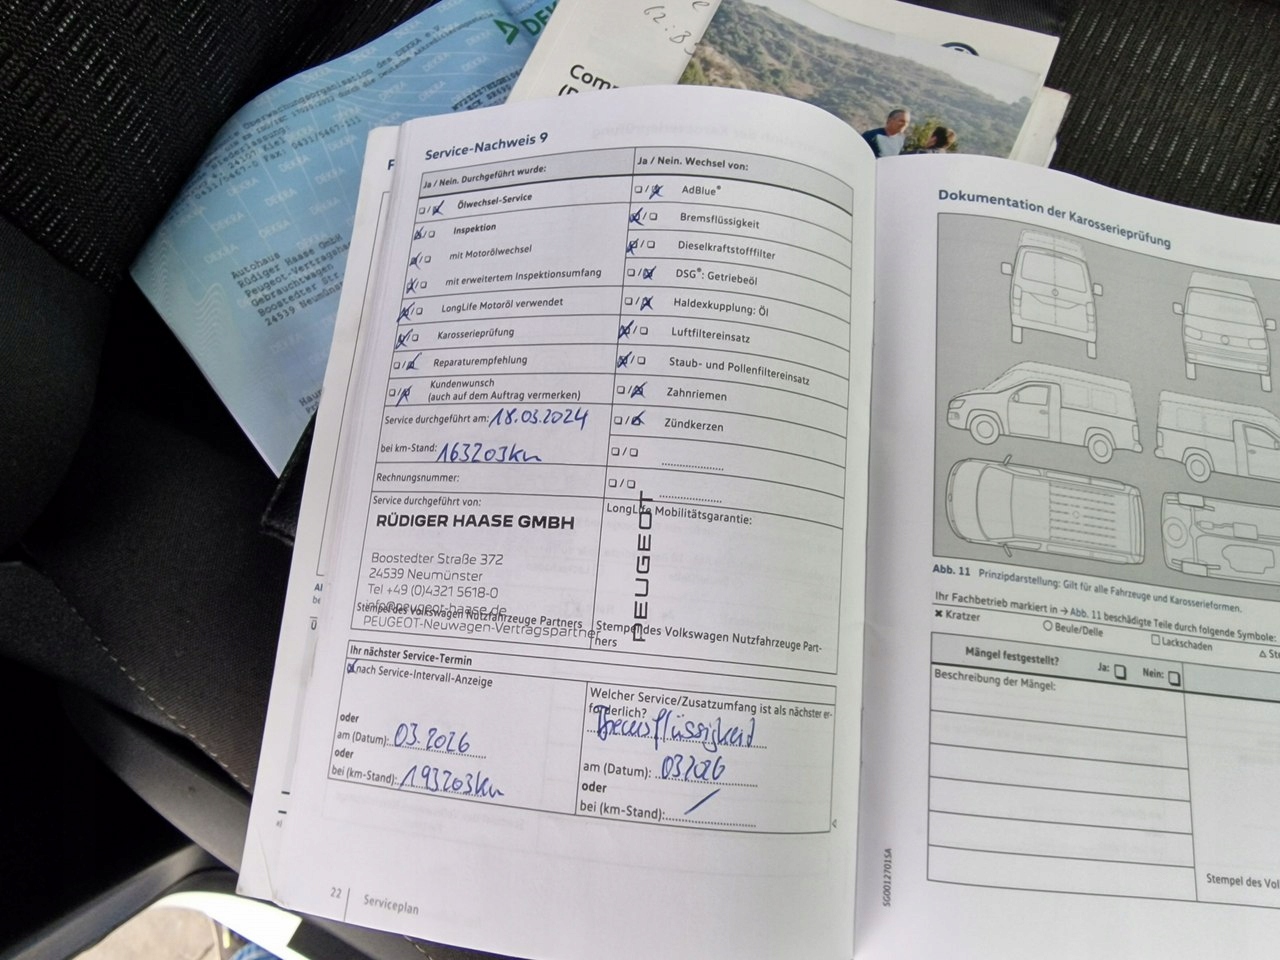 DEKRA
Überwachungsorganisation des DEKRA e.V.
0431/5467-111
Autohaus
Rüdiger Haase GmbH
Peugeot-Vertragshä
Gebrauchtwagen
Boostedter Str.
24539 Neumünst
62.8
Comm
Service-Nachweis 9
Ja / Nein. Durchgeführt wurde:
Ja / Nein. Wechsel von:
Ölwechsel-Service
AdBlue®
Inspektion
Bremsflüssigkeit
mit Motorölwechsel
Dieselkraftstofffilter
mit erweitertem Inspektionsumfang
DSG®: Getriebeöl
LongLife Motoröl verwendet
Haldexkupplung: Öl
Karosserieprüfung
Luftfiltereinsatz
Reparaturempfehlung
Staub- und Pollenfiltereinsatz
Kundenwunsch
(auch auf dem Auftrag vermerken)
Zahnriemen
Service durchgeführt am: 18.03.2024
Zündkerzen
bei km-Stand: 163203km
Rechnungsnummer:
Service durchgeführt von:
LongLife Mobilitätsgarantie:
RÜDIGER HAASE GMBH
Boostedter Straße 372
24539 Neumünster
Tel +49 (0)4321 5618-0
info@peugeot-haase.de
Stempel des Volkswagen Nutzfahrzeuge Partners
PEUGEOT-Neuwagen-Vertragspartner
PEUGEOT
Stempel des Volkswagen Nutzfahrzeuge Part-
ners
Ihr nächster Service-Termin
nach Service-Intervall-Anzeige
oder
am (Datum): 03.2026
oder
bei (km-Stand): 193203km
Welcher Service/Zusatzumfang ist als nächster er-
forderlich?
Bremsflüssigkeit
am (Datum): 032026
oder
bei (km-Stand): /
22 Serviceplan
Dokumentation der Karosserieprüfung
Abb. 11 Prinzipdarstellung: Gilt für alle Fahrzeuge und Karosserieformen.
Ihr Fachbetrieb markiert in → Abb. 11 beschädigte Teile durch folgende Symbole:
Kratzer
Beule/Delle
Lackschaden
Ste
Mängel festgestellt? Ja: Nein:
Beschreibung der Mängel:
Stempel des Vol
SG0012701SA